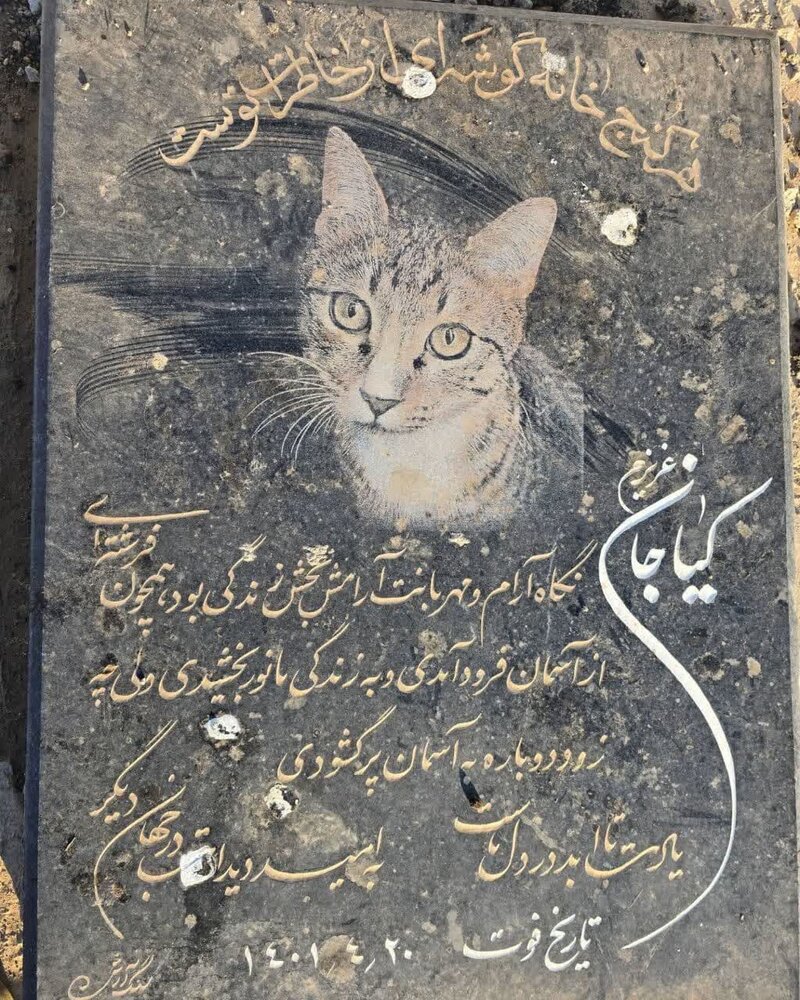 هر کنج خانه گوشه‌ای از خاطرات توست
کیان جان عزیزم
نگاه آرام و مهربانت آرامش بخش زندگی بود، همچون فرشته‌ای
از آسمان فرود آمدی و به زندگی ما نور بخشیدی ولی چه
زود دوباره به آسمان پر گشودی
یادت تا ابد در دل ماست
به امید دیدارت در جهان دیگر
تاریخ فوت ۱۴۰۱٫۴٫۲۰